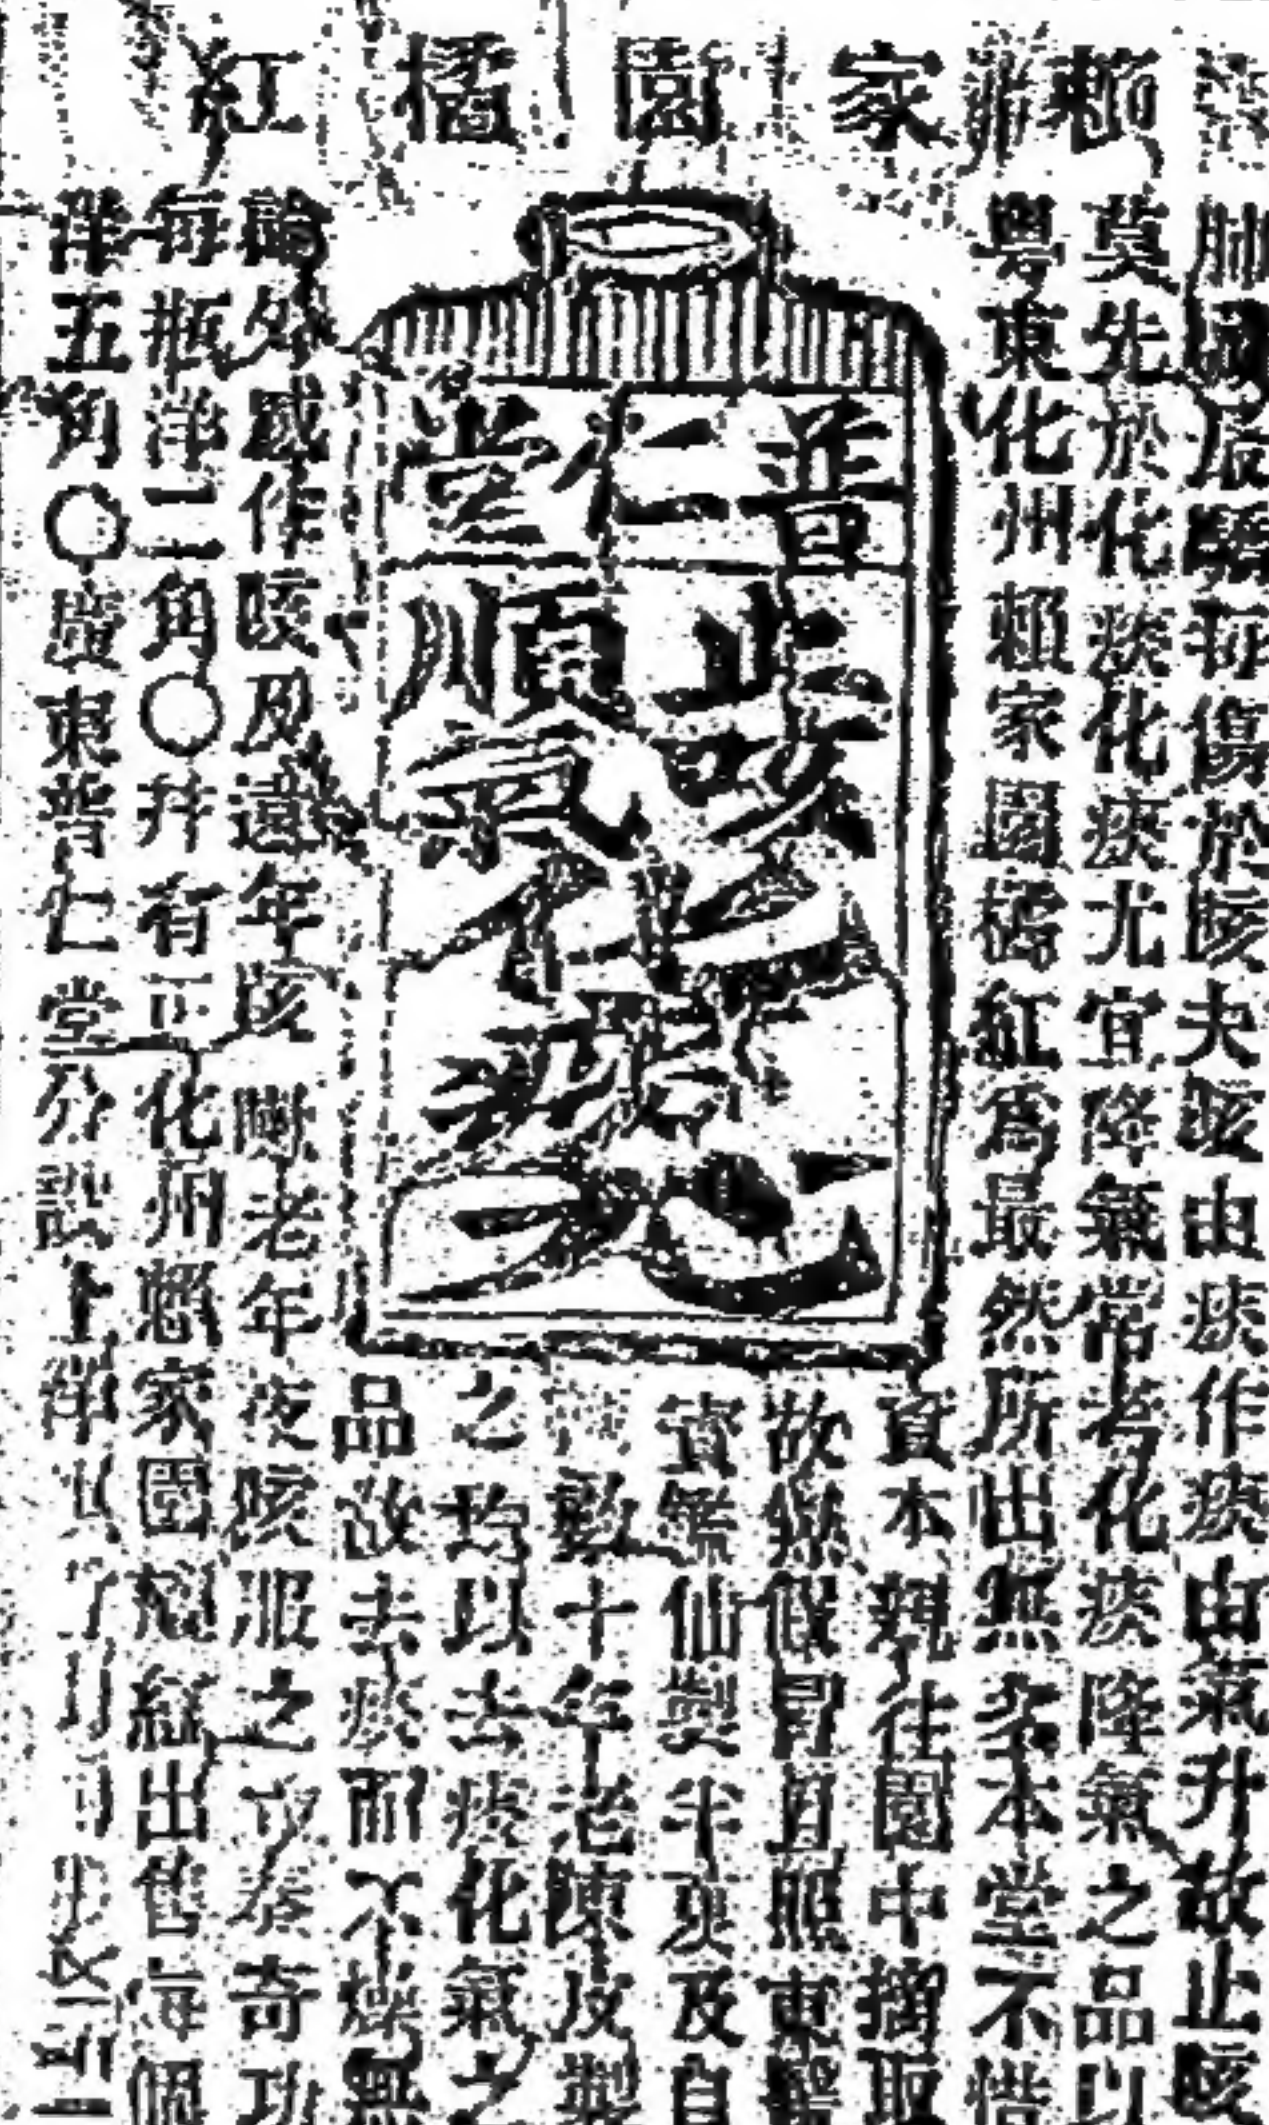 賴家園橘紅
肺最嬌每傷於咳夫咳由痰作痰由氣升故止咳
莫先於化痰化痰尤宜降氣常考化痰降氣之品以
粵東化州賴家園橘紅為最然所出無多本堂不惜
資本親往園中摘取
故無假冒且照東醫
實驗仙製半夏及自
數十年老陳皮製
之均以去痰化氣之
品故去痰而不燥無
普仁堂
止咳
順氣
化
丸
論外感作咳及遠年咳嗽老年夜咳服之立奏奇功
每瓶洋二角〇幷有正化州賴家園橘紅出售每個
洋五角〇廣東普仁堂分設上洋